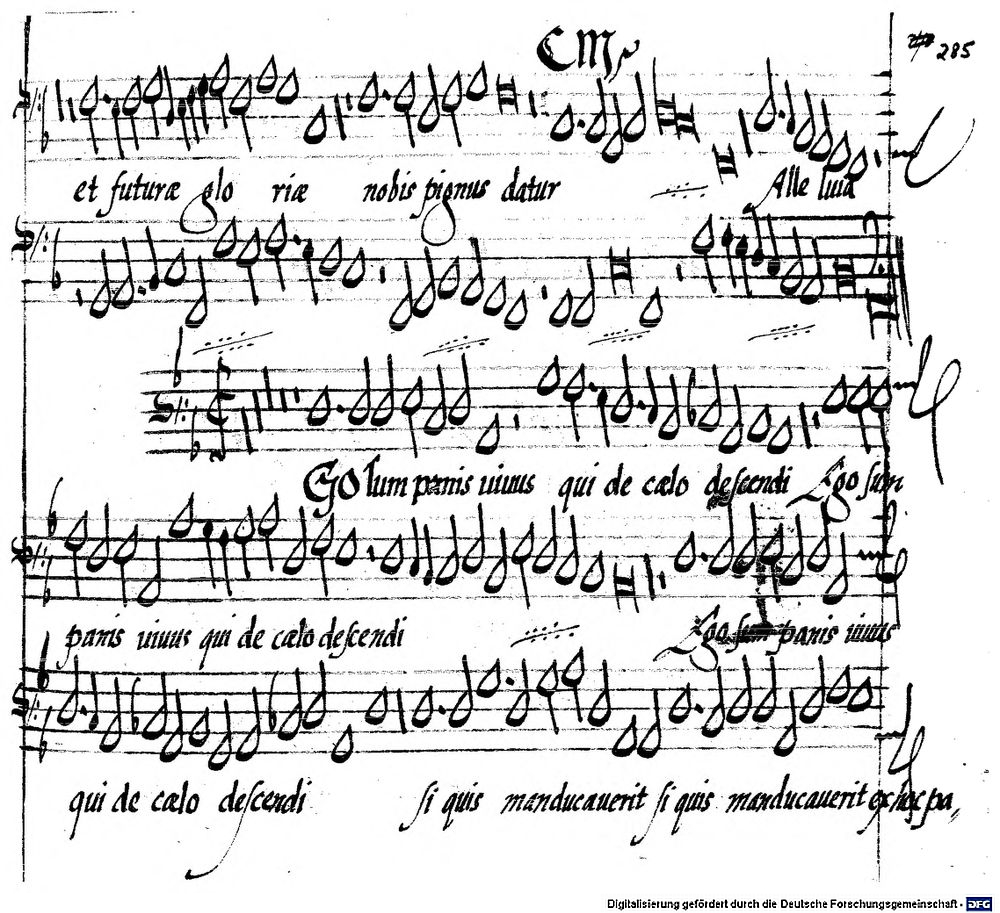 285
et futuræ glo riæ nobis pignus datur Alle luia
EGO sum panis uiuus qui de cælo descendi Ego sum
panis uiuus qui de cælo descendi Ego sum panis uiuus
qui de cælo descendi si quis manducauerit si quis manducauerit ex hoc pa,
Digitalisierung gefördert durch die Deutsche Forschungsgemeinschaft - DFG